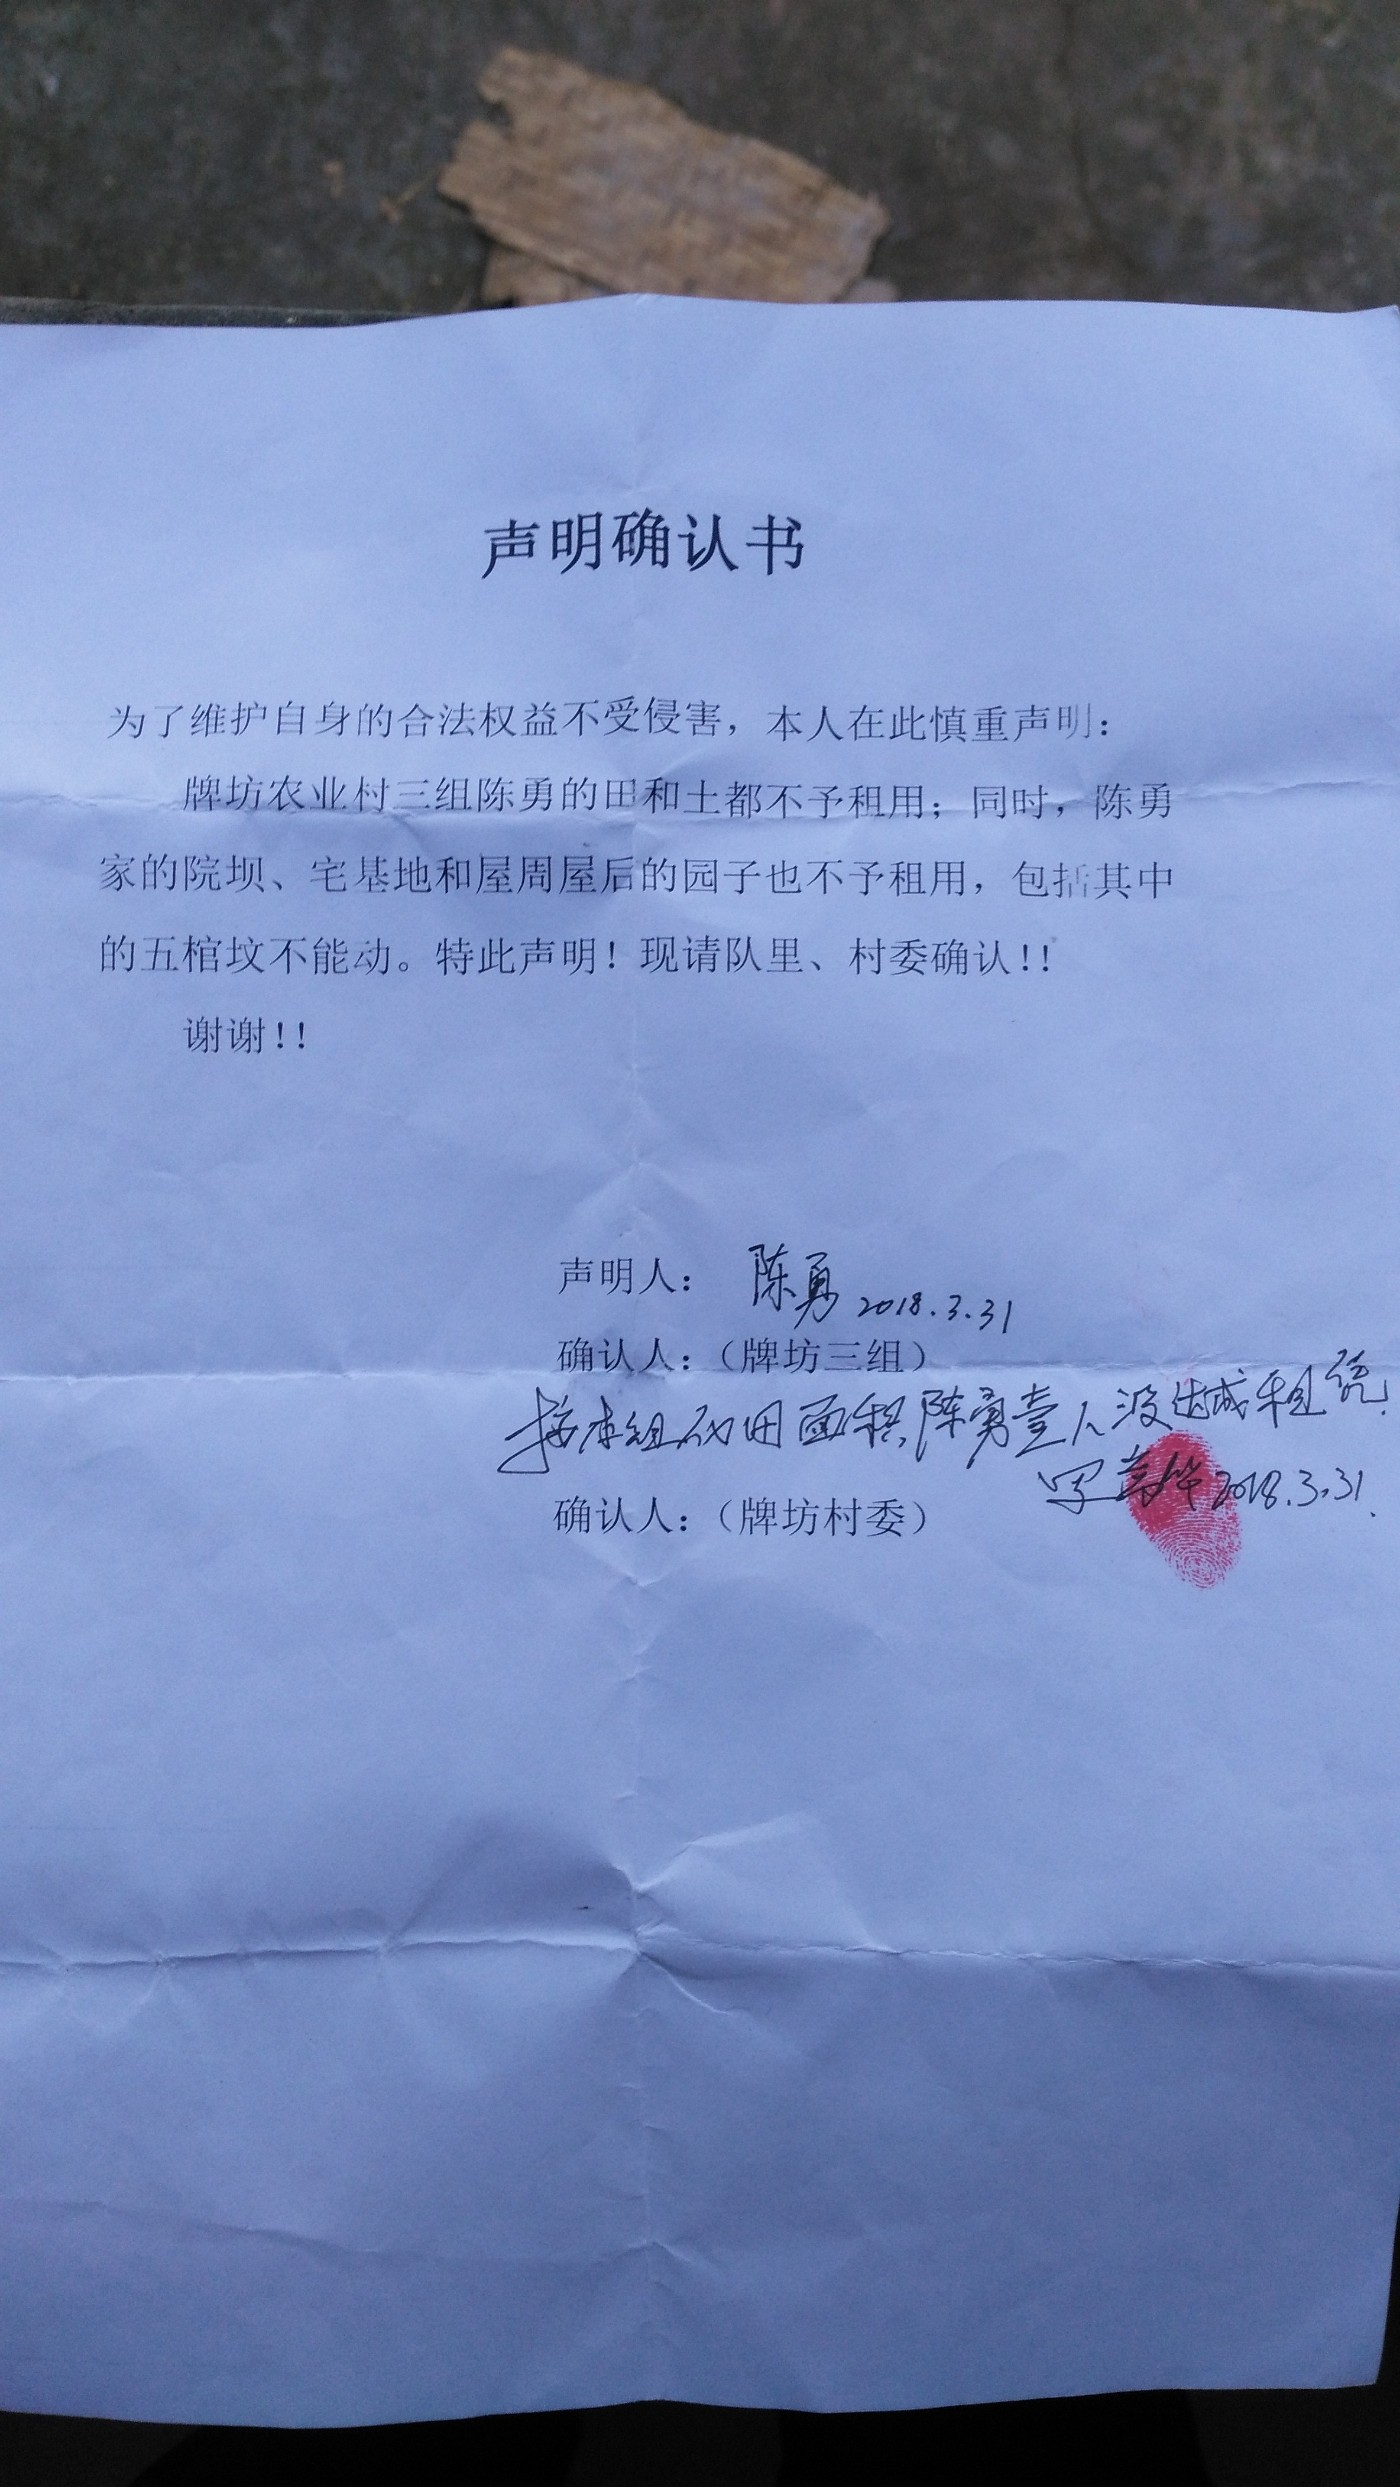 声明确认书
为了维护自身的合法权益不受侵害，本人在此慎重声明：
牌坊农业村三组陈勇的田和土都不予租用；同时，陈勇
家的院坝、宅基地和屋周屋后的园子也不予租用，包括其中
的五棺坟不能动。特此声明！现请队里、村委确认！！
谢谢！！
声明人：陈勇 2018.3.31
确认人：（牌坊三组）
按本组 田面积陈勇壹人没 租
2018.3.31
确认人：（牌坊村委）